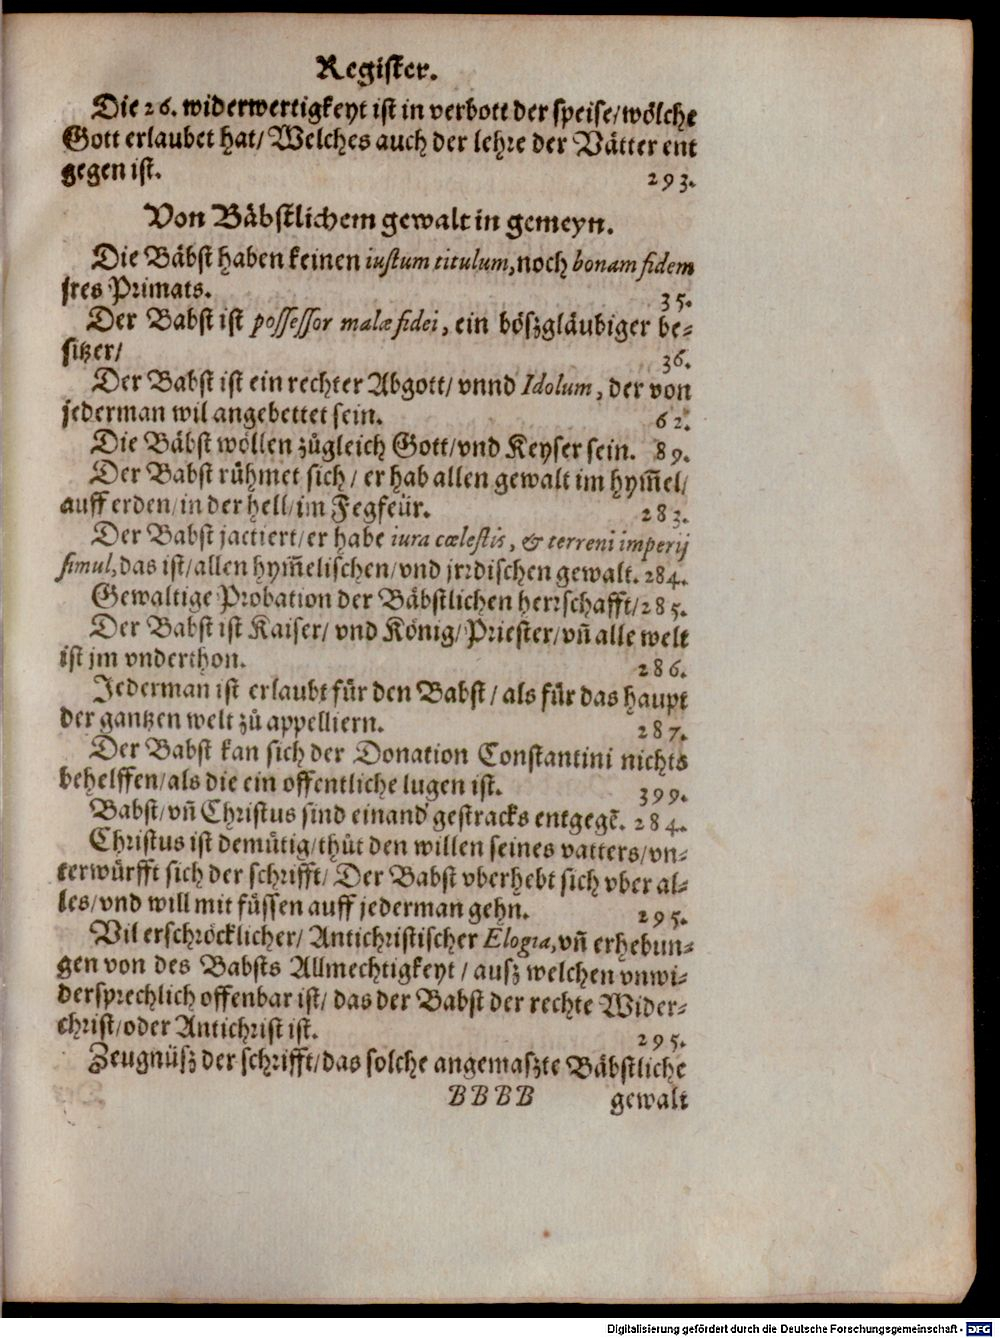 Register.
Die 26. widerwertigkeyt ist in verbott der speise/wölche
Gott erlaubet hat/ Welches auch der lehre der Vätter ent
gegen ist. 293.
Von Bäbstlichem gewalt in gemeyn.
Die Bäbst haben keinen iustum titulum, noch bonam fidem
jres Primats. 35.
Der Babst ist possessor malæ fidei, ein böszgläubiger be=
sitzer/ 36.
Der Babst ist ein rechter Abgott/ vnnd Idolum, der von
jederman wil angebettet sein. 62.
Die Bäbst wöllen zůgleich Gott/vnd Keyser sein. 89.
Der Babst rühmet sich/ er hab allen gewalt im hym̃el/
auff erden/in der hell/im Fegfeür. 283.
Der Babst jactiert/er habe iura cœlestis, & terreni imperij
simul, das ist/allen hym̃elischen/vnd jrrdischen gewalt. 284.
Gewaltige Probation der Bäbstlichen herrschafft/285.
Der Babst ist Kaiser/ vnd König/Priester/vñ alle welt
ist jm vnderthon. 286.
Jederman ist erlaubt für den Babst/ als für das haupt
der gantzen welt zů appelliern. 287.
Der Babst kan sich der Donation Constantini nichts
behelffen/als die ein offentliche lugen ist. 399.
Babst/vñ Christus sind einand' gestracks entgegẽ. 284.
Christus ist demütig/thůt den willen seines vatters/vn=
terwürfft sich der schrifft/ Der Babst vberhebt sich vber al=
les/vnd will mit füssen auff jederman gehn. 295.
Vil erschröcklicher/ Antichristischer Elogia, vñ erhebun=
gen von des Babsts Allmechtigkeyt/ ausz welchen vnwi=
dersprechlich offenbar ist/ das der Babst der rechte Wider=
christ/oder Antichrist ist. 295.
Zeugnüsz der schrifft/das solche angemaszte Bäbstliche
BBBB gewalt
Digitalisierung gefördert durch die Deutsche Forschungsgemeinschaft - DFG